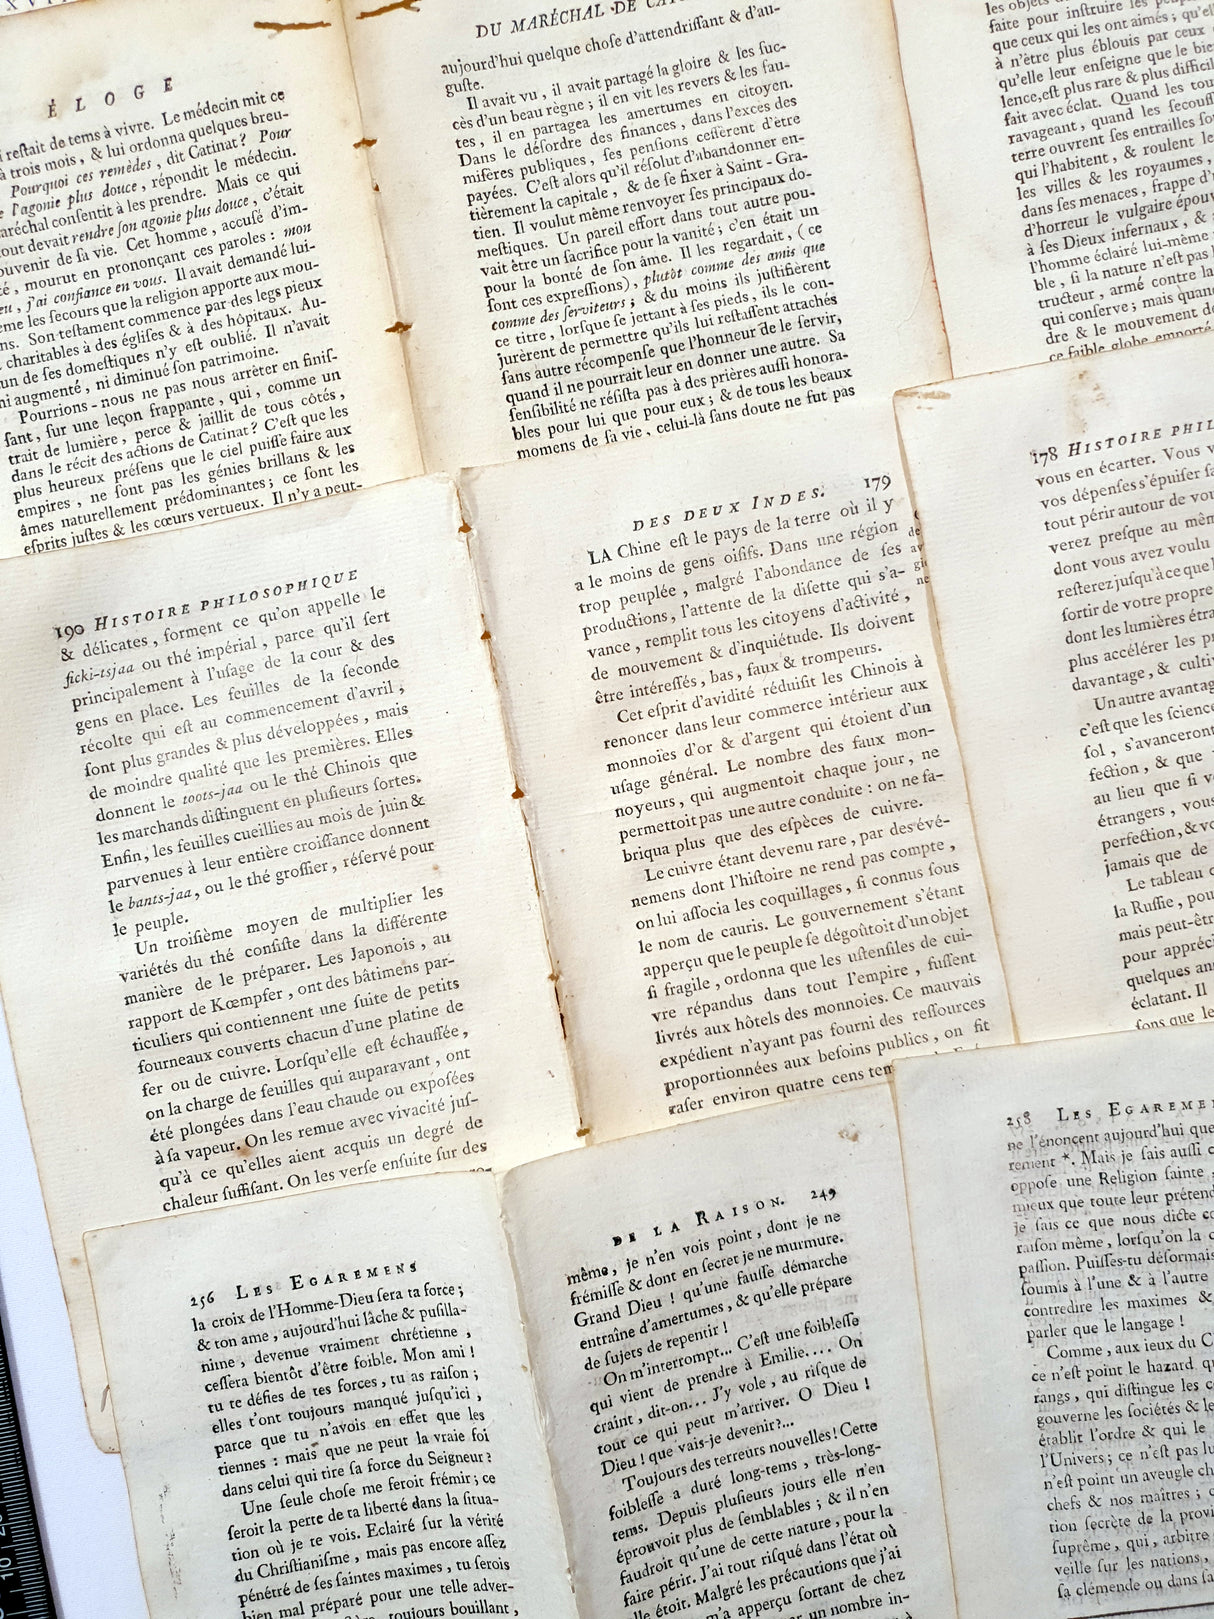 ÉLOGE
reſtait de tems à vivre. Le médecin mit ce
à trois mois, & lui ordonna quelques breu-
Pourquoi ces remèdes, dit Catinat? Pour
l'agonie plus douce, répondit le médecin.
conſentit à les prendre. Mais ce qui
devait rendre ſon agonie plus douce, c'était
de ſa vie. Cet homme, accuſé d'im-
mourut en prononçant ces paroles: mon
j'ai confiance en vous. Il avait demandé lui-
les ſecours que la religion apporte aux mou-
Son teſtament commence par des legs pieux
charitables à des égliſes & à des hôpitaux. Au-
un de ſes domeſtiques n'y eſt oublié. Il n'avait
ni augmenté, ni diminué ſon patrimoine.
Pourrions-nous ne pas nous arrêter en finiſ-
ſant, ſur une leçon frappante, qui, comme un
trait de lumière, perce & jaillit de tous côtés,
dans le récit des actions de Catinat? C'eſt que les
plus heureux préſens que le ciel puiſſe faire aux
empires, ne ſont pas les génies brillans & les
âmes naturellement prédominantes; ce ſont les
eſprits juſtes & les cœurs vertueux. Il n'y a peut-
DU MARÉCHAL DE
aujourd'hui quelque choſe d'attendriſſant & d'au-
guſte.
Il avait vu, il avait partagé la gloire & les ſuc-
cès d'un beau règne; il en vit les revers & les fau-
tes, il en partagea les amertumes en citoyen.
Dans le déſordre des finances, dans l'excès des
miſères publiques, ſes penſions ceſſèrent d'être
payées. C'eſt alors qu'il réſolut d'abandonner en-
tièrement la capitale, & de ſe fixer à Saint-Gra-
tien. Il voulut même renvoyer ſes principaux do-
meſtiques. Un pareil effort dans tout autre pou-
vait être un ſacrifice pour la vanité; c'en était un
pour la bonté de ſon âme. Il les regardait, (ce
ſont ces expreſſions), plutôt comme des amis que
comme des ſerviteurs; & du moins ils juſtifièrent
ce titre, lorſque ſe jettant à ſes pieds, ils le con-
jurèrent de permettre qu'ils lui reſtaſſent attachés
ſans autre récompenſe que l'honneur de le ſervir,
quand il ne pourrait leur en donner une autre. Sa
ſenſibilité ne réſiſta pas à des prières auſſi honora-
bles pour lui que pour eux; & de tous les beaux
momens de ſa vie, celui-là ſans doute ne fut pas
les objets
faite pour inſtruire les
que ceux qui les ont aimés; qu'el
à n'être plus éblouis par ceux
qu'elle leur enſeigne que le bie
lence, eſt plus rare & plus difficil
fait avec éclat. Quand les tou
ravageant, quand les ſecouſſ
terre ouvrent ſes entrailles ſo
qui l'habitent, & roulent le
les villes & les royaumes,
dans ſes menaces, frappe d'
d'horreur le vulgaire épouv
à ſes Dieux infernaux, &
l'homme éclairé lui-même
ble, ſi la nature n'eſt pas
tructeur, armé contre la
qui conſerve; mais quan
dre & le mouvement de
ce faible globe emporté
190 HISTOIRE PHILOSOPHIQUE
& délicates, forment ce qu'on appelle le
ficki-tsjaa ou thé impérial, parce qu'il ſert
principalement à l'uſage de la cour & des
gens en place. Les feuilles de la ſeconde
récolte qui eſt au commencement d'avril;
ſont plus grandes & plus développées, mais
de moindre qualité que les premières. Elles
donnent le toots-jaa ou le thé Chinois que
les marchands diſtinguent en pluſieurs ſortes.
Enfin, les feuilles cueillies au mois de juin &
parvenues à leur entière croiſſance donnent
le bants-jaa, ou le thé groſſier, réſervé pour
le peuple.
Un troiſième moyen de multiplier les
variétés du thé conſiſte dans la différente
manière de le préparer. Les Japonois, au
rapport de Kœmpfer, ont des bâtimens par-
ticuliers qui contiennent une ſuite de petits
fourneaux couverts chacun d'une platine de
fer ou de cuivre. Lorſqu'elle eſt échauffée,
on la charge de feuilles qui auparavant, ont
été plongées dans l'eau chaude ou expoſées
à ſa vapeur. On les remue avec vivacité juſ-
qu'à ce qu'elles aient acquis un degré de
chaleur ſuffiſant. On les verſe enſuite ſur des
DES DEUX INDES. 179
LA Chine eſt le pays de la terre où il y
a le moins de gens oiſifs. Dans une région
trop peuplée, malgré l'abondance de ſes
productions, l'attente de la diſette qui s'a-
vance, remplit tous les citoyens d'activité,
de mouvement & d'inquiétude. Ils doivent
être intéreſſés, bas, faux & trompeurs.
Cet eſprit d'avidité réduiſit les Chinois à
renoncer dans leur commerce intérieur aux
monnoies d'or & d'argent qui étoient d'un
uſage général. Le nombre des faux mon-
noyeurs, qui augmentoit chaque jour, ne
permettoit pas une autre conduite: on ne fa-
briqua plus que des eſpèces de cuivre.
Le cuivre étant devenu rare, par des évé-
nemens dont l'hiſtoire ne rend pas compte,
on lui aſſocia les coquillages, ſi connus ſous
le nom de cauris. Le gouvernement s'étant
apperçu que le peuple ſe dégoûtoit d'un objet
ſi fragile, ordonna que les uſtenſiles de cui-
vre répandus dans tout l'empire, fuſſent
livrés aux hôtels des monnoies. Ce mauvais
expédient n'ayant pas fourni des reſſources
proportionnées aux beſoins publics, on fit
raſer environ quatre cens tem
178 HISTOIRE PHIL
vous en écarter. Vous v
vos dépenſes s'épuiſer ſa
tout périr autour de vou
verez preſque au mêm
dont vous avez voulu
reſterez juſqu'à ce que l
ſortir de votre propre
dont les lumières étra
plus accélérer les pr
davantage, & cultiv
Un autre avantag
c'eſt que les ſcience
ſol, s'avanceront
fection, & que
au lieu que ſi vo
étrangers, vous
perfection, & vo
jamais que de
Le tableau
la Ruſſie, pou
mais peut-êtr
pour appréci
quelques an
éclatant. Il
ſons que le
256 LES EGAREMENS
la croix de l'Homme-Dieu ſera ta force;
& ton ame, aujourd'hui lâche & puſilla-
nime, devenue vraiment chrétienne,
ceſſera bientôt d'être foible. Mon ami!
tu te défies de tes forces, tu as raiſon;
elles t'ont toujours manqué juſqu'ici,
parce que tu n'avois en effet que les
tiennes: mais que ne peut la vraie foi
dans celui qui tire ſa force du Seigneur?
Une ſeule choſe me feroit frémir; ce
ſeroit la perte de ta liberté dans la ſitua-
tion où je te vois. Eclairé ſur la vérité
du Chriſtianiſme, mais pas encore aſſez
pénétré de ſes ſaintes maximes, tu ſerois
bien mal préparé pour une telle adver-
toujours bouillant,
DE LA RAISON. 249
même, je n'en vois point, dont je ne
frémiſſe & dont en ſecret je ne murmure.
Grand Dieu! qu'une fauſſe démarche
entraîne d'amertumes, & qu'elle prépare
de ſujets de repentir!
On m'interrompt... C'eſt une foibleſſe
qui vient de prendre à Emilie.... On
craint, dit-on... J'y vole, au riſque de
tout ce qui peut m'arriver. O Dieu!
Dieu! que vais-je devenir?...
Toujours des terreurs nouvelles! Cette
foibleſſe a duré long-tems, très-long-
tems. Depuis pluſieurs jours elle n'en
éprouvoit plus de ſemblables; & il n'en
faudroit qu'une de cette nature, pour la
faire périr. J'ai tout riſqué dans l'état où
elle étoit. Malgré les précautions que j'ai
m'a apperçu ſortant de chez
un nombre in-
258 LES EGAREME
ne l'énoncent aujourd'hui que
rement *. Mais je ſais auſſi
oppoſe une Religion ſainte
mieux que toute leur préten
je ſais ce que nous dicte
raiſon même, lorſqu'on la
paſſion. Puiſſes-tu déſormais
ſoumis à l'une & à l'autre
contredire les maximes &
parler que le langage!
Comme, aux ieux du C
ce n'eſt point le hazard
rangs, qui diſtingue les
gouverne les ſociétés & le
établit l'ordre & qui le
l'Univers; ce n'eſt pas
n'eſt point un aveugle
chefs & nos maîtres;
tion ſecrète de la provi
ſuprême, qui, arbitre
veille ſur les nations,
ſa clémence ou dans ſa